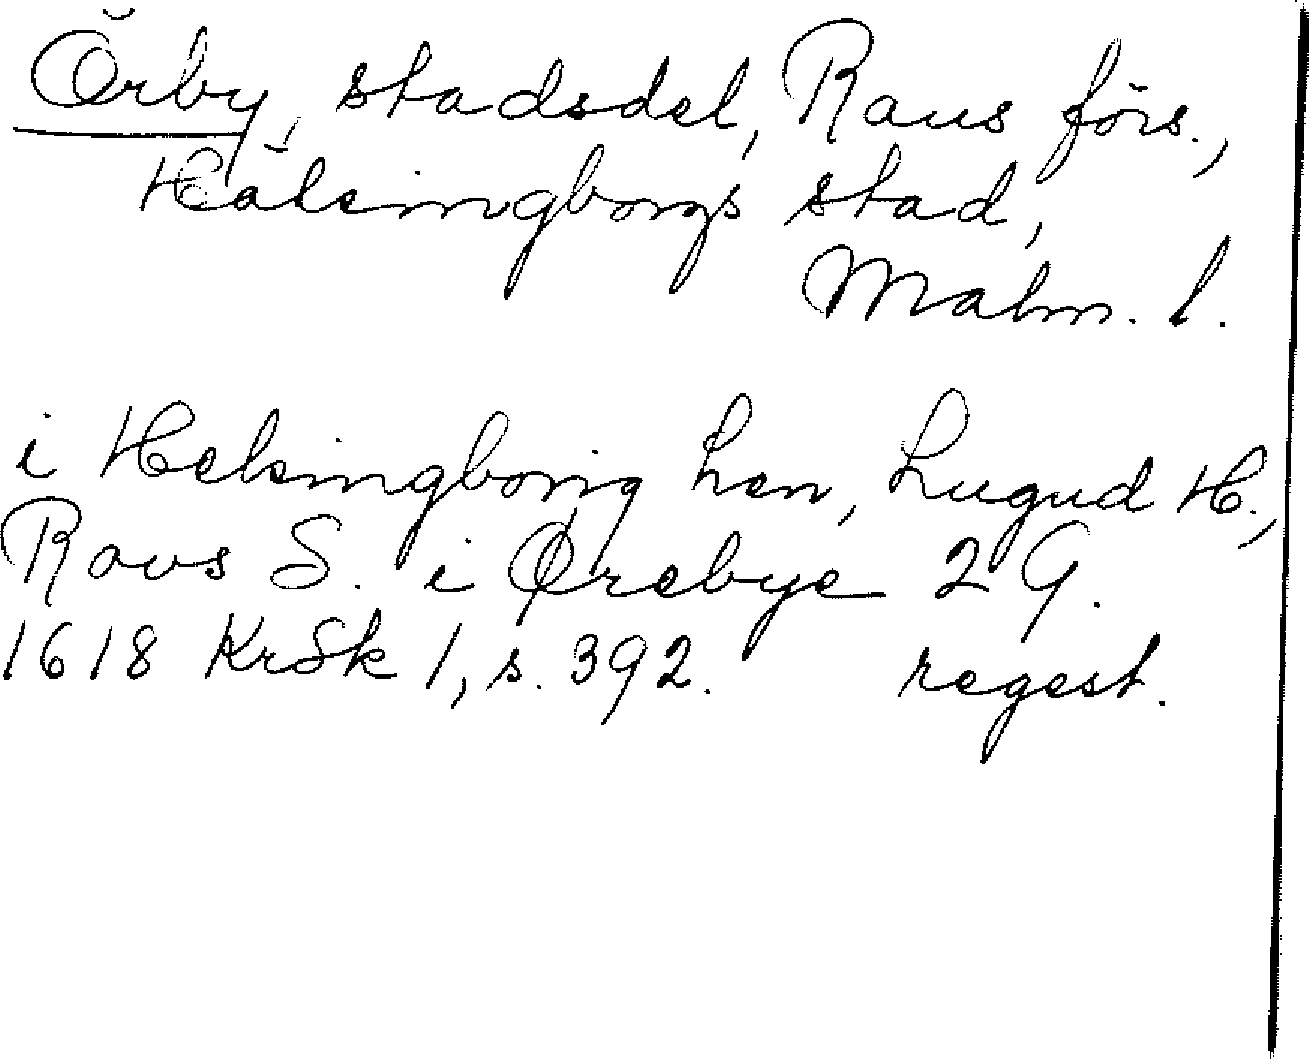 Örby, stadsdel, Raus förs.,
Hälsingborgs stad,
Malm. l.
i Helsingborig Len, Lugud H.,
Raus S. i Ørebye 2 G.
1618 KrSk 1, s. 392. regest.